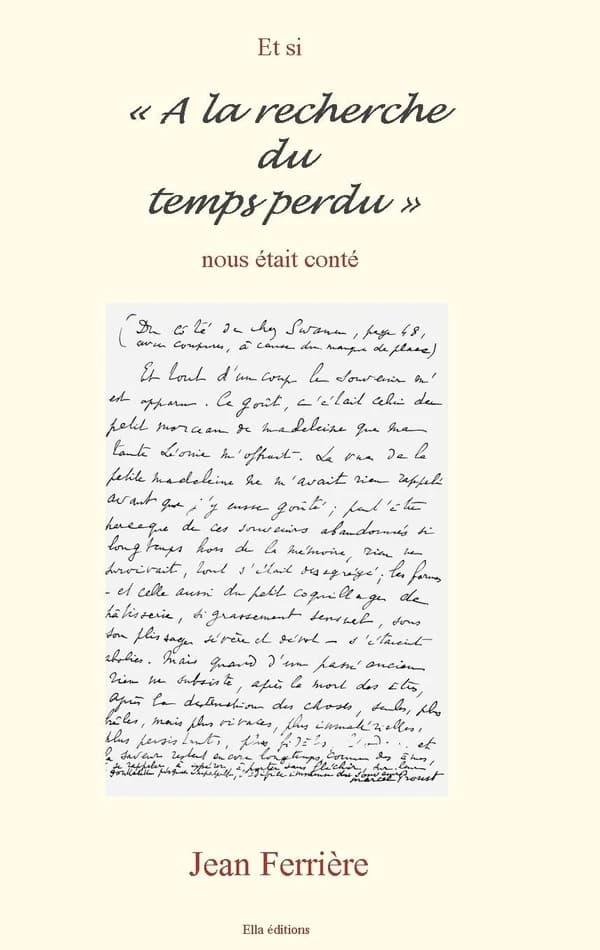 Et si
« A la recherche
du
temps perdu »
nous était conté
(Du côté de chez Swann, page 48,
avec coupures, à cause du manque de place)
Et tout d'un coup le souvenir m'
est apparu. Ce goût, c'était celui du
petit morceau de madeleine que ma
tante Léonie m'offrait. La vue de la
petite madeleine ne m'avait rien rappelé
avant que j'y eusse goûté ; peut-être
parceque de ces souvenirs abandonnés si
longtemps hors de la mémoire, rien ne
survivait, tout s'était désagrégé ; les formes
- et celle aussi du petit coquillage de
pâtisserie, si grassement sensuel, sous
son plissage sévère et dévot - s'étaient
abolies. Mais quand d'un passé ancien
rien ne subsiste, après la mort des êtres,
après la destruction des choses, seules, plus
frêles, mais plus vivaces, plus immatérielles,
plus persistantes, plus fidèles, et
la saveur restent encore longtemps, comme des âmes,
à se rappeler, à espérer, à porter sans fléchir, sur leur
gouttelette presque impalpable, l'édifice immense du souvenir
Marcel Proust
Jean Ferrière
Ella éditions